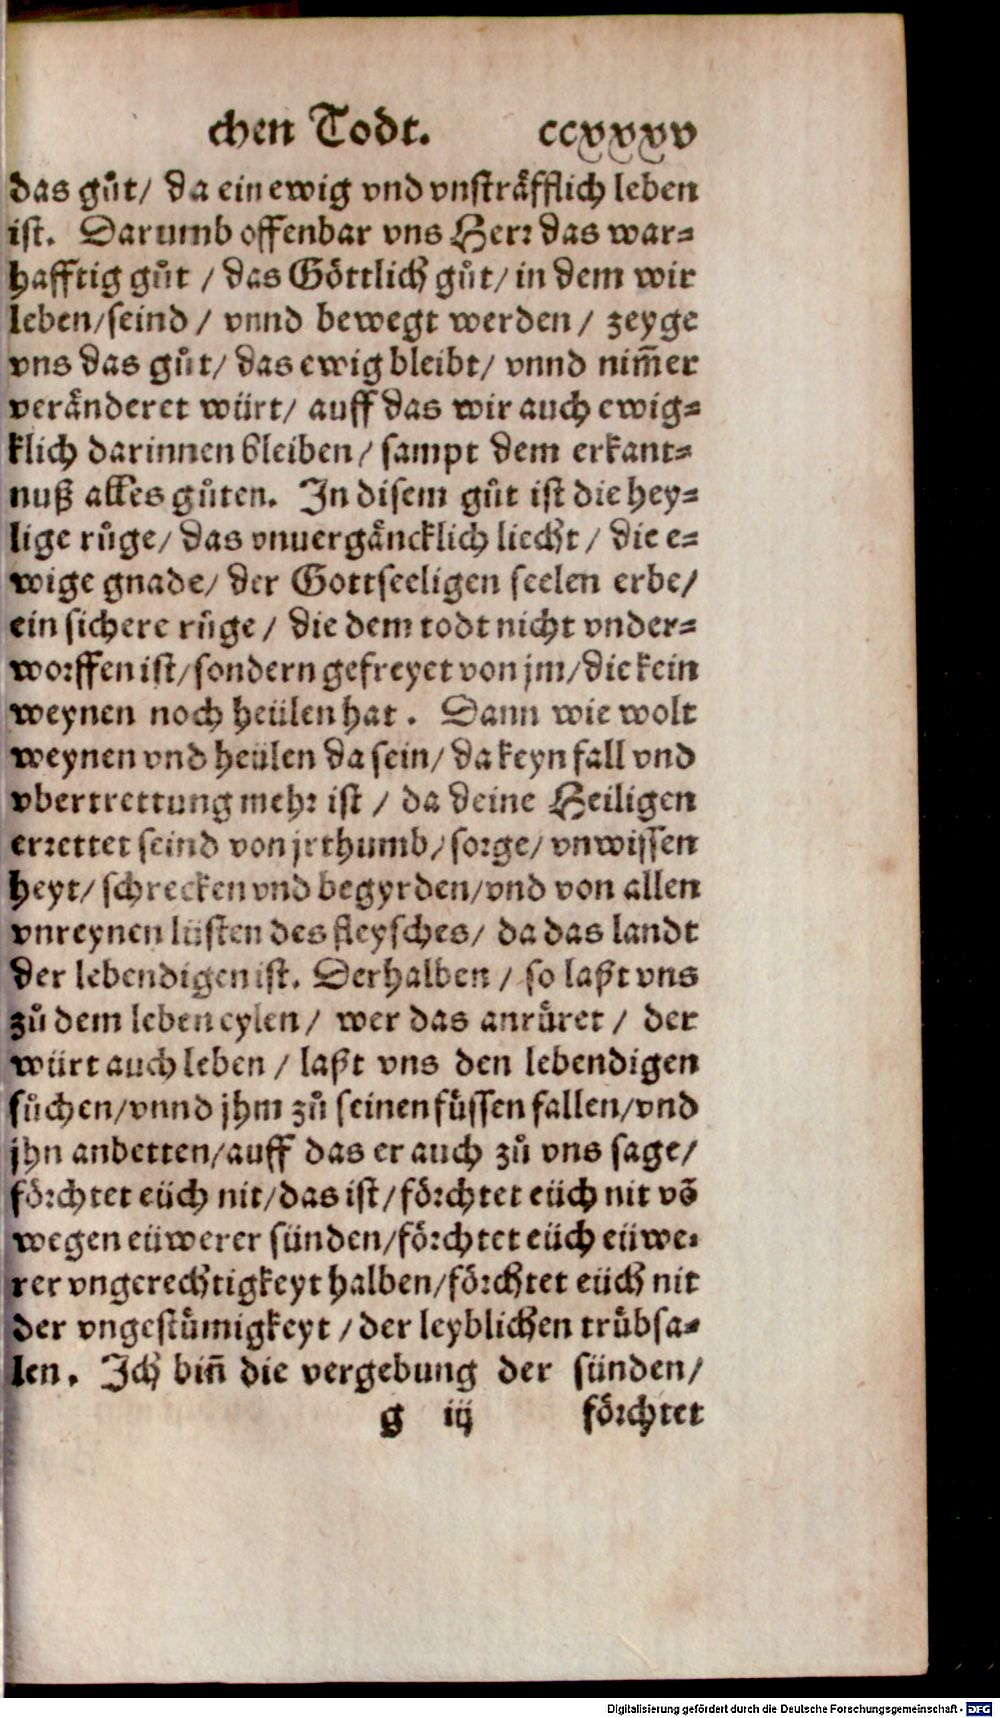 chen Todt. ccxxxv
das gůt/ da ein ewig vnd vnsträfflich leben
ist. Darumb offenbar vns Herr das war-
hafftig gůt / das Göttlich gůt/ in dem wir
leben/seind / vnnd bewegt werden / zeyge
vns das gůt/ das ewig bleibt/ vnnd nim̄er
veränderet würt/ auff das wir auch ewig-
klich darinnen bleiben / sampt dem erkant-
nuß alles gůten. In disem gůt ist die hey-
lige růge/ das vnuergäncklich liecht / die e-
wige gnade/ der Gottseeligen seelen erbe/
ein sichere růge / die dem todt nicht vnder-
worffen ist/sondern gefreyet von jm/die kein
weynen noch heülen hat . Dann wie wolt
weynen vnd heülen da sein/ da keyn fall vnd
vbertrettung mehr ist / da deine Heiligen
errettet seind von jrthumb/ sorge/ vnwissen
heyt/ schrecken vnd begyrden/vnd von allen
vnreynen lüsten des fleysches/ da das landt
der lebendigen ist. Derhalben / so laßt vns
zů dem leben eylen / wer das anrůret / der
würt auch leben / laßt vns den lebendigen
sůchen/vnnd jhm zů seinen fůssen fallen/vnd
jhn anbetten/auff das er auch zů vns sage/
förchtet eüch nit/das ist/förchtet eüch nit võ
wegen eüwerer sünden/förchtet eüch eüwe-
rer vngerechtigkeyt halben/förchtet eüch nit
der vngestůmigkeyt / der leyblichen trůbsa-
len. Ich bin̄ die vergebung der sünden/
g iij förchtet
Digitalisierung gefördert durch die Deutsche Forschungsgemeinschaft - DFG